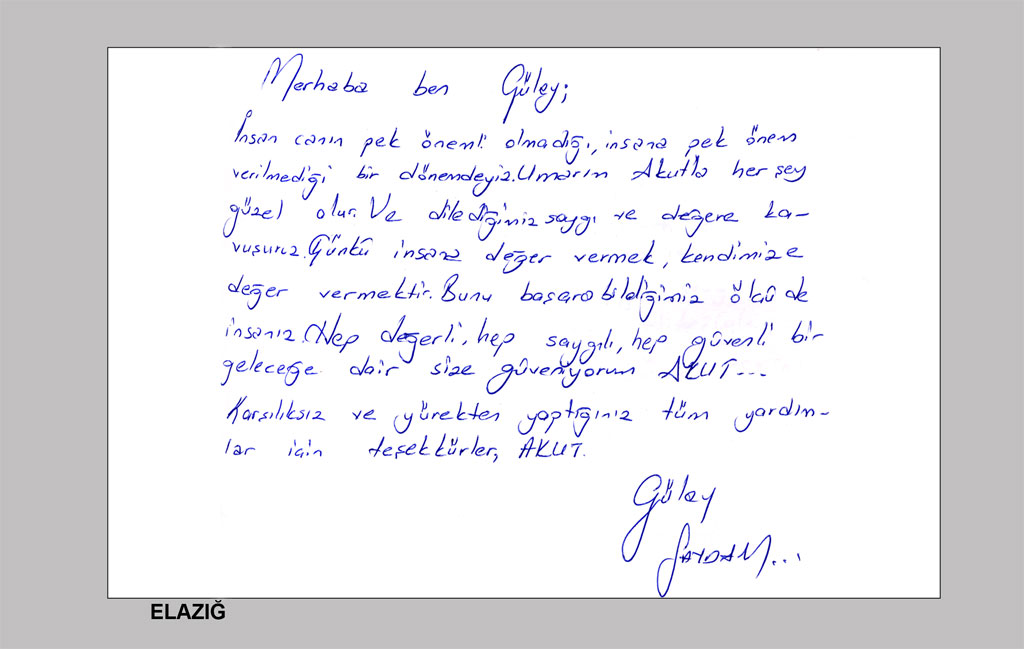 Merhaba ben Gülay;
İnsan canın pek önemli olmadığı, insana pek önem
verilmediği bir dönemdeyiz. Umarım Akutla her şey
güzel olur. Ve dilediğimiz saygı ve değere ka-
vuşuruz. Günkü insana değer vermek, kendimize
değer vermektir. Bunu başarabildiğimiz ölçüde
insanız. Hep değerli, hep saygılı, hep güvenli bir
geleceğe dair size güveniyorum AKUT...
Karşılıksız ve yürekten yaptığınız tüm yardım-
lar için teşekkürler, AKUT.
Gülay
SAYDAM...
ELAZIĞ